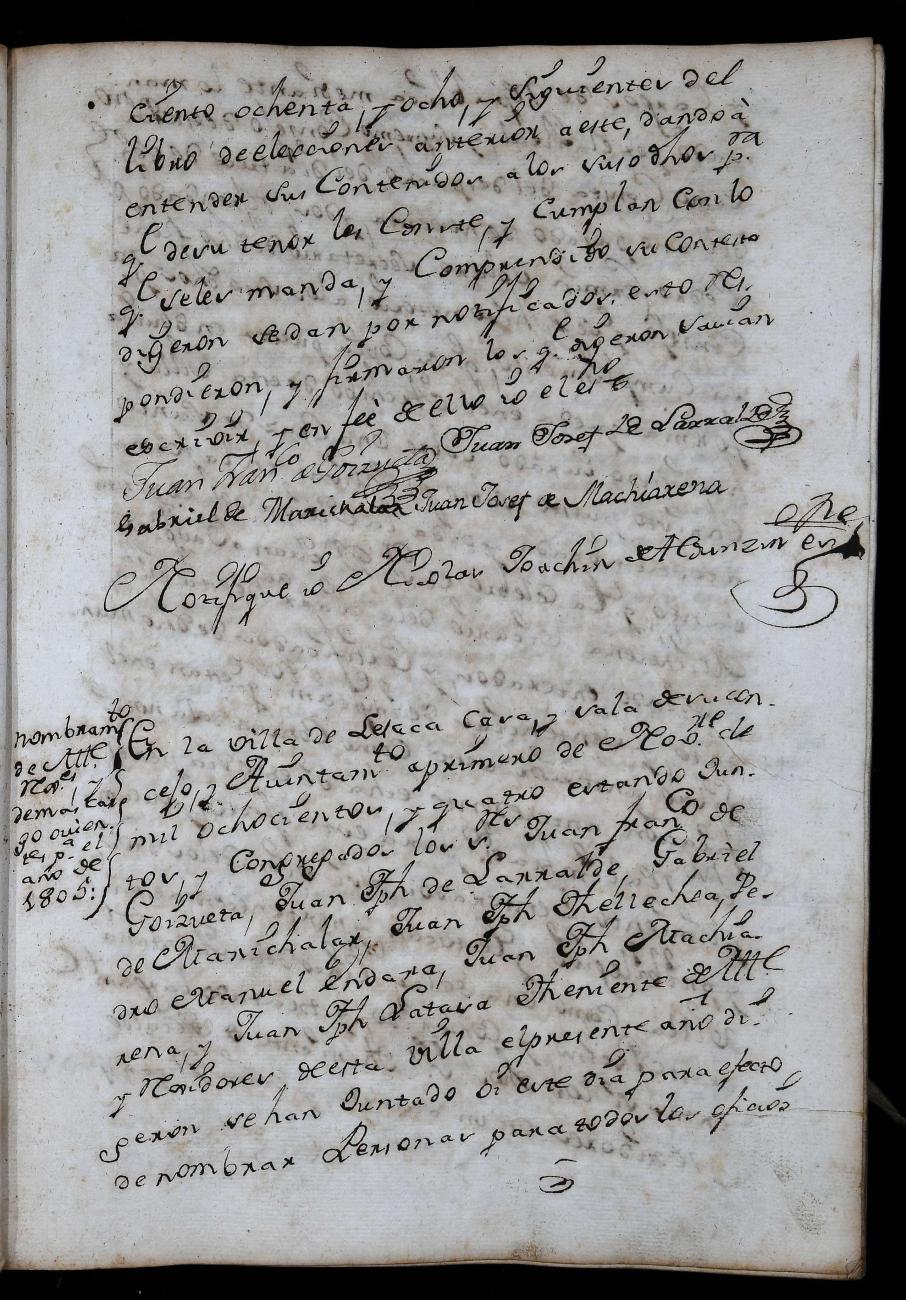 ciento ochenta, y ocho, y siguientes del
libro de elecciones anterior a este, dando à
entender sus Contenidos a los susodhos pa
ql de su tenor les Conste, y Cumplan Con lo
ql seles manda, y Comprendido su Contesto
digeron sedan por notificados, esto Res-
pondieron, y firmaron los ql digeron savian
escrivir, y en feè de ello io el esno
Juan Franco de Gorzueta Juan Josef de Larralde
Gabriel de Marichalar Juan Josef de Machiarena
Notifiqué io Nicolas Joachin de Alduncin esno
nombramto
de Alle
Rres, y
demas car
gos ovien
tes pa el
año de
1805:
En la villa de Lesaca Casa, y sala de su con-
cejo, y Aiuntamto a primero de Novre de
mil ochocientos, y quatro estando Jun-
tos, y Congregados los Srs Juan franco de
Gorzueta, Juan Jph de Larralde, Gabriel
de Marichalar, Juan Jph Thellechea, Pe-
dro Manuel Endara, Juan Jph Machia-
rena, y Juan Jph Latasa Theniente de Alle
y Regidores de esta villa el presente año di-
geron se han Juntado oi este dia para efecto
de nombrar Personas para todos los oficios